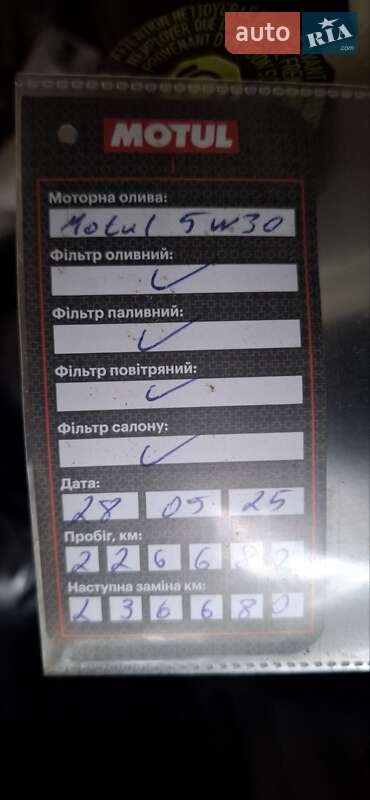 auto RIA
.com
MOTUL
Моторна олива:
Motul 5w30
Фільтр оливний:
Фільтр паливний:
Фільтр повітряний:
Фільтр салону:
Дата:
28 05 25
Пробіг, км:
226680
Наступна заміна км:
236680